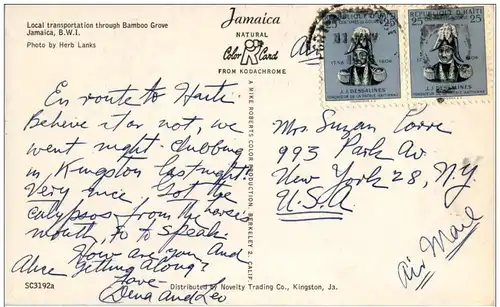 Local transportation through Bamboo Grove
Jamaica, B.W.I.
Photo by Herb Lanks
Jamaica
NATURAL
Color Card
FROM KODACHROME
En route to Haiti
Believe it or not, we
went night-clubbing
in Kingston last night.
Very nice. Got the
calypsos from the horse's
mouth, so to speak.
How are you and
Alice getting along?
Love-
Dena and Leo
SC3192a
A MIKE ROBERTS COLOR PRODUCTION, BERKELEY 2, CALIF.
Distributed by Novelty Trading Co., Kingston, Ja.
25
REPUBLIQUE D'HAITI
25
1758
1806
J.J. DESSALINES
FONDATEUR DE LA PATRIE HAITIENNE
Mrs. Suzan
993 Park Av
New York 28, N.Y.
U.S.A.
Air Mail